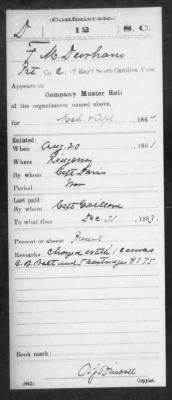 Confederate.
D 12 S.C.
F M Durham
Pvt, Co. C, 12 Reg't South Carolina Vols.
Appears on
Company Muster Roll
of the organization named above,
for Sept & Oct, 186
Enlisted:
When Aug 20, 1861
Where
By whom Capt Davis
Period War
Last paid:
By whom Capt
To what time Dec. 31, 1863.
Present or absent Present
Remarks: Charged with 1 canvas
C. B. Belt and 5 cartridges $3.75
Book mark:
(642)
Copyist.